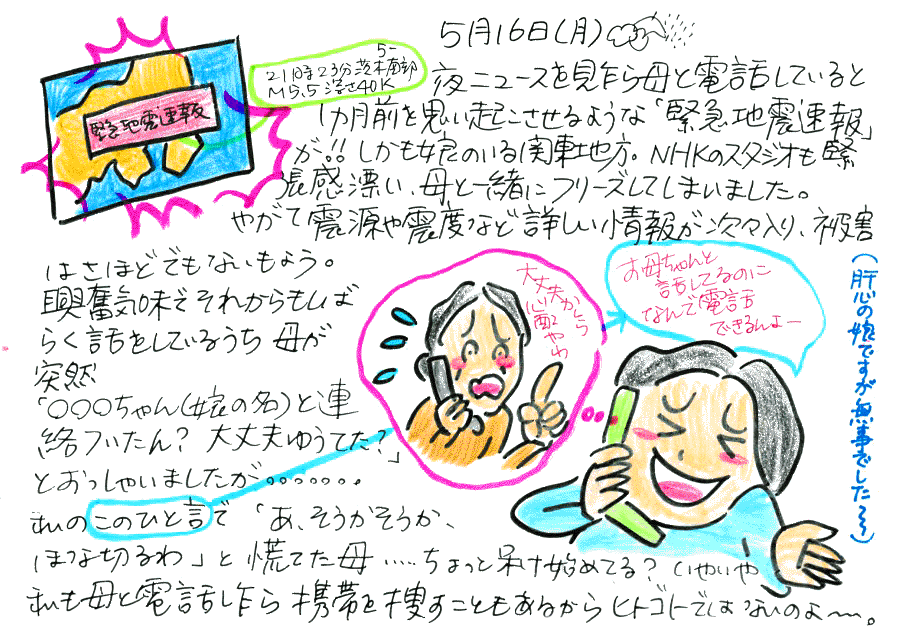 5月16日(月)
緊急地震速報
5-
21時23分茨木南部
M5.5 深さ40K
夜ニュースを見乍ら母と電話していると
1カ月前を思い起こさせるような「緊急地震速報」
が!! しかも娘のいる関東地方。NHKのスタジオも緊
張感漂い、母と一緒にフリーズしてしまいました。
やがて震源や震度など詳しい情報が次々入り、被害
はさほどでもないもよう。
興奮気味でそれからもしば
らく話をしているうち 母が
突然
「〇〇〇ちゃん(娘の名)と連
絡ついたん? 大丈夫ゆうてた?」
とおっしゃいましたが。。。。。。。
私の このひと言で 「あ、そうかそうか、
ほな切るわ」と 慌てた母 ..... ちょっと呆け始めてる? いやいや
私も母と電話し乍ら 携帯を捜すこともあるから ヒトゴトではないのよ〜。
大丈夫かしら
心配やわ
お母ちゃんと
話してるのに
なんで電話
できるんよー
(肝心の娘ですが無事でした〜)